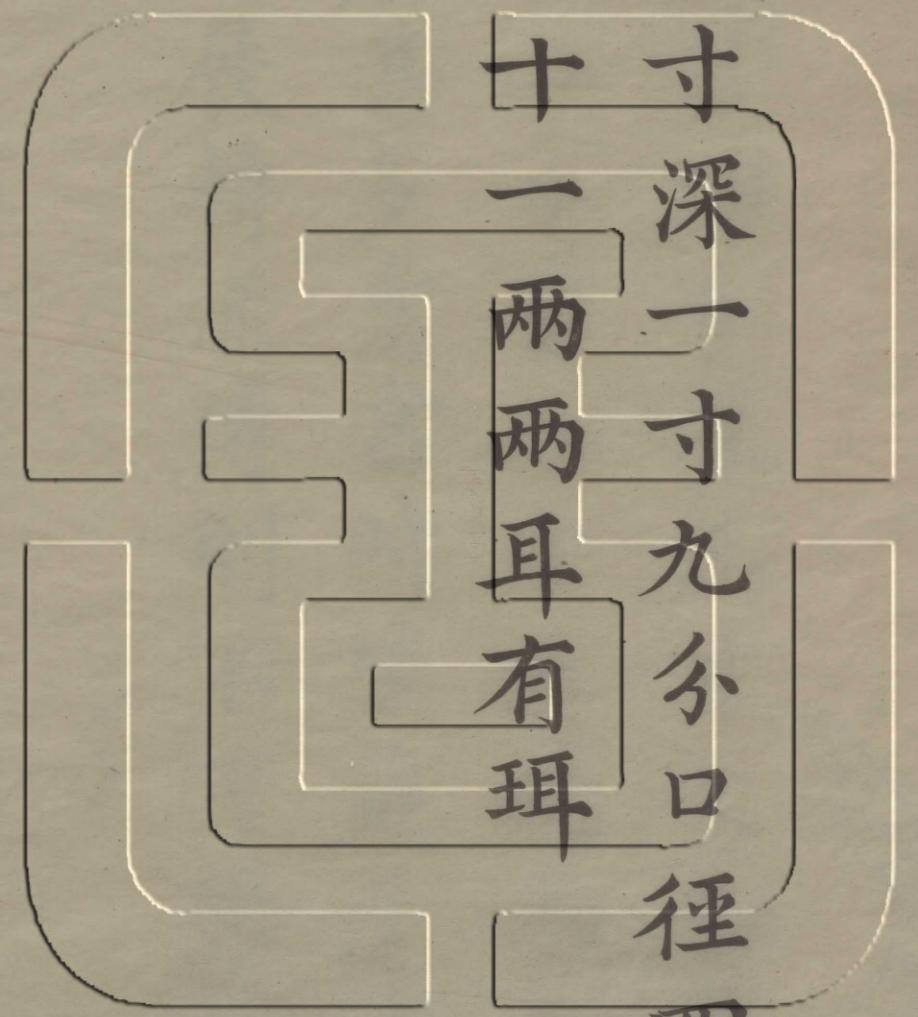 寸深一寸九分口徑
十一兩兩耳有珥